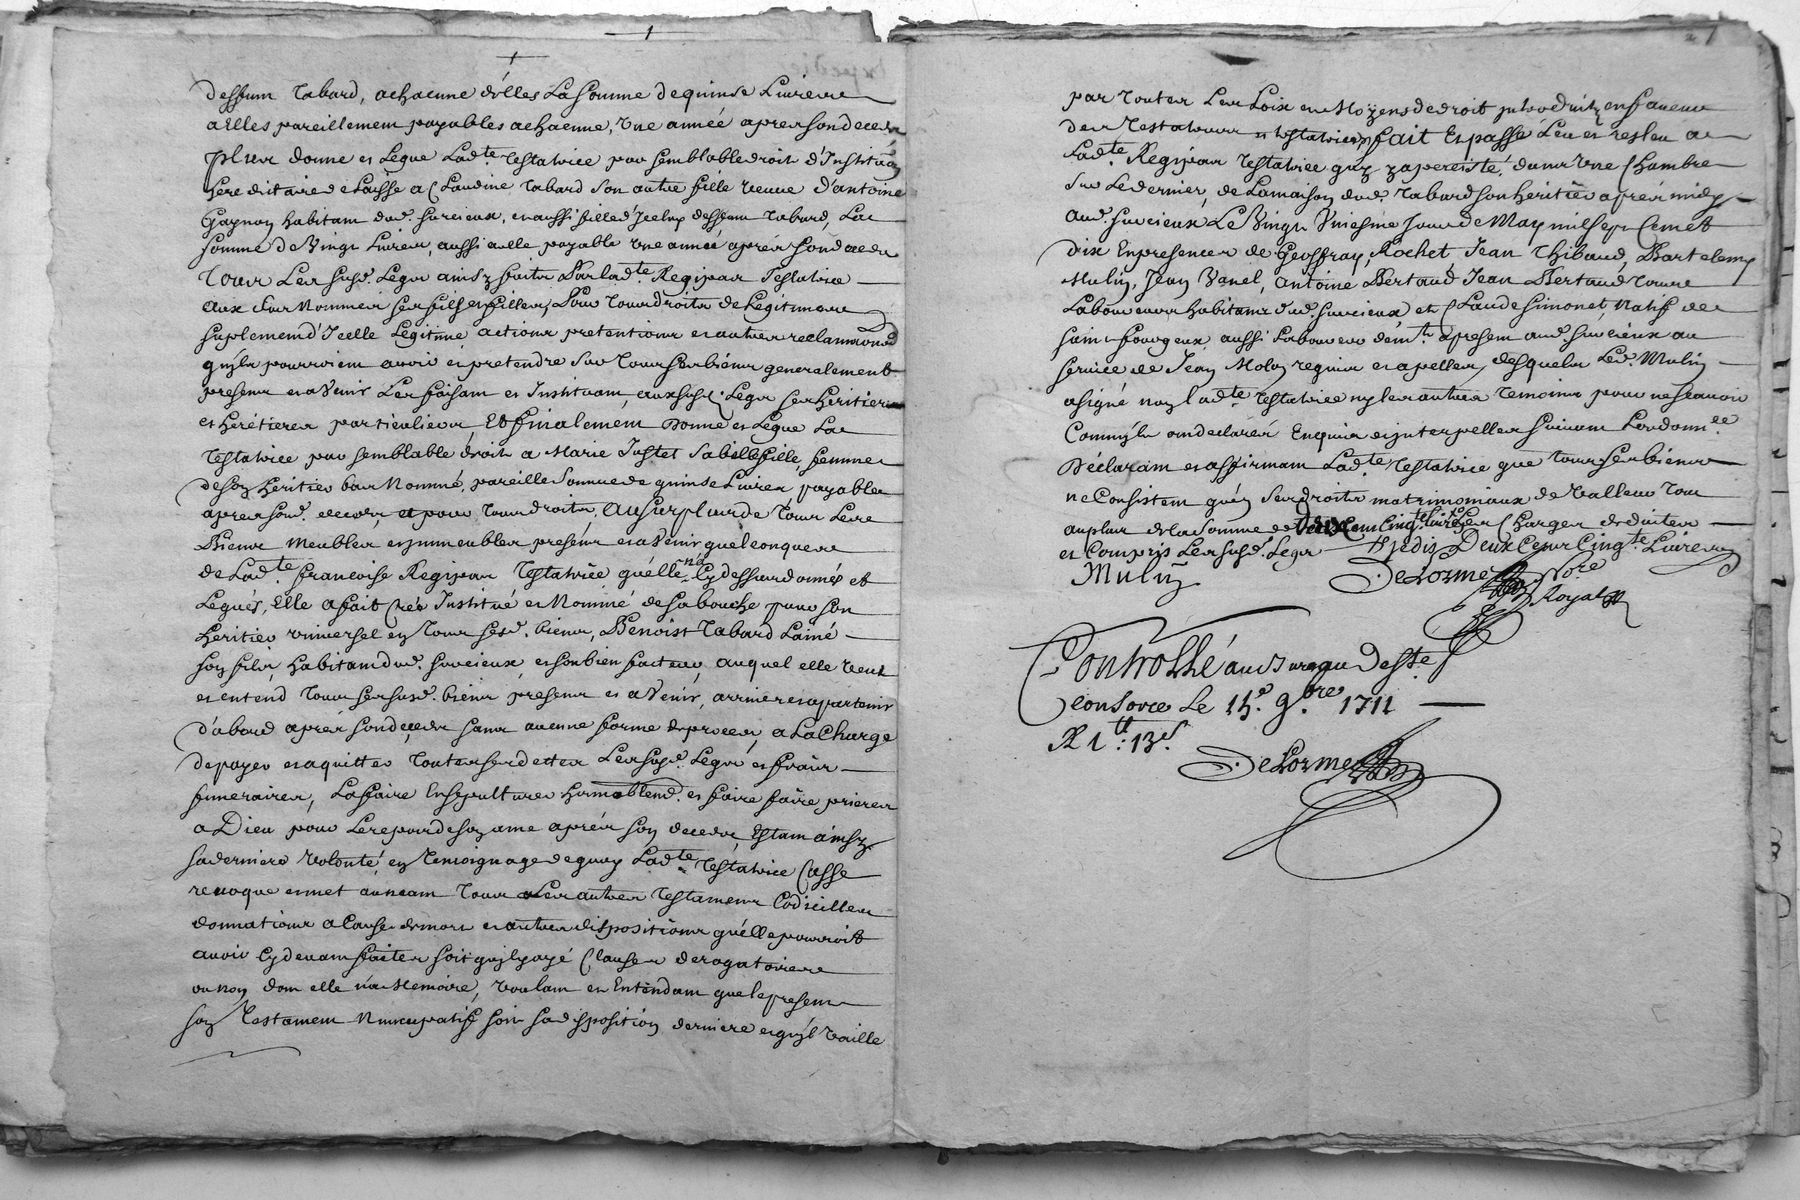 deffunt Tabard, a chacune d'élles La somme de quinse Livres
a Elles pareillement payables a chacune, Une année apres son deces
plus donne et Legue Lad.te Testatrice par semblable droit d'Institution
hereditaire et Laisse a Claudine Tabard son autre fille veuve d'antoine
Gaynon habitant dud. survieux, et aussi fille d'Icelluy deffunt Tabard, La
somme de Vingt Livres, aussi a elle payable Une année aprés son deces
Tous Les susd. Legts ainsy faits Par lad.te Regipas Testatrice
aux Nommés ses fils et filles, Pour Tous droits de Legitime
suplement d'Icelle Legitime, actions pretentions et autres reclamations
quils pourroient avoir et pretendre sur Tous ses biens generalement
presents et a Venir Les faisant et Instituant, aux susd. Legts ses heritiers
et héretieres particulieres, Et finalement Donne et Legue La
Testatrice par semblable droit a Marie Justet sa belle fille femme
de son heritier bas Nommé, pareille Somme de quinse Livres payables
apres sond. deces, et pour Tous droits, Au surplus de Tous Les
Biens Meubles et immeubles presents et a Venir quelconques
de Lad.te francoise Regipas Testatrice quélle n'a Cy dessus donnés et
Legués, Elle a fait Créé Institué et Nommé de sa bouche pour son
heritier universel en Tous sesd. biens, Benoist Tabard Lainé
son fils, habitant dud. survieux, et son bien facteur, auquel elle veut
et entend Tous ses susd. biens presents et a Venir, arriver et apartenir
d'abord aprés son deces sans aucune forme de proces, a La Charge
de payer et aquitter Toutes ses dettes Les susd. Legts et frais
funeraires, La faire Ensepulturer honnoblemt. et faire faire prieres
a Dieu pour Le repos de son ame aprés son deces, Estant áinsy
sa derniere Volonté, en Temoignage de quoy Lad.te Testatrice Casse
revoque et met au neant Tous Les autres Testaments Codicilles
donnations a Cause de mort et autres dispositions quélle pourroit
avoir Cy devant faites soit quil y aye Clauses derogatoires
ou non dont elle n'a Memoire, Voulant et Entendant que le present
son Testament Nuncupatif soit sa disposition derniere et quil Vaille
par Toutes Les Loix et Moÿens de droit introduits en faveur
des Testateurs et testatrices, fait Et passé Leu et releu a
Lad.te Regipas Testatrice quy y a persisté, dans Une Chambre
sur Le derrier, de La maison dud. Tabard son heritiér aprés midy
aud. survieux Le Vingt Uniesme Jour de May mil sept Cent
dix En presences de Geoffray Rochet Jean Thibaud, Bartelemy
Mulin, Jean Vanel, Antoine Bertaud Jean Bertaud Tous
Laboureurs habitants dud. survieux et Claude Simonet, Natif de
saint forgeux aussi Laboureur demt. a present aud. survieux au
service de Jean Molon requis et apellés, desquels Led. Mulin
a signé non lad.te Testatrice ny les autres Temoins pour ne scavoir
Comm'ils ont declarés Enquis et interpellés suivant Lordonn.ce
Déclarant et affirmant Lad.te Testatrice que Tous ses biens
ne Consistent qu'en ses droits matrimoniaux de Valleur Tout
au plus de la somme de deux Cent Cinq.te livres Les Charges deduites
et Compris Les susd. Legts Deux Cents Cinq.te Livres
Mulin
DeLorme No.re
Royal
Controllé au Bureau de St.e
Consorce Le 15.e 9.bre 1711
R 1 tt: 13 s.
DeLorme